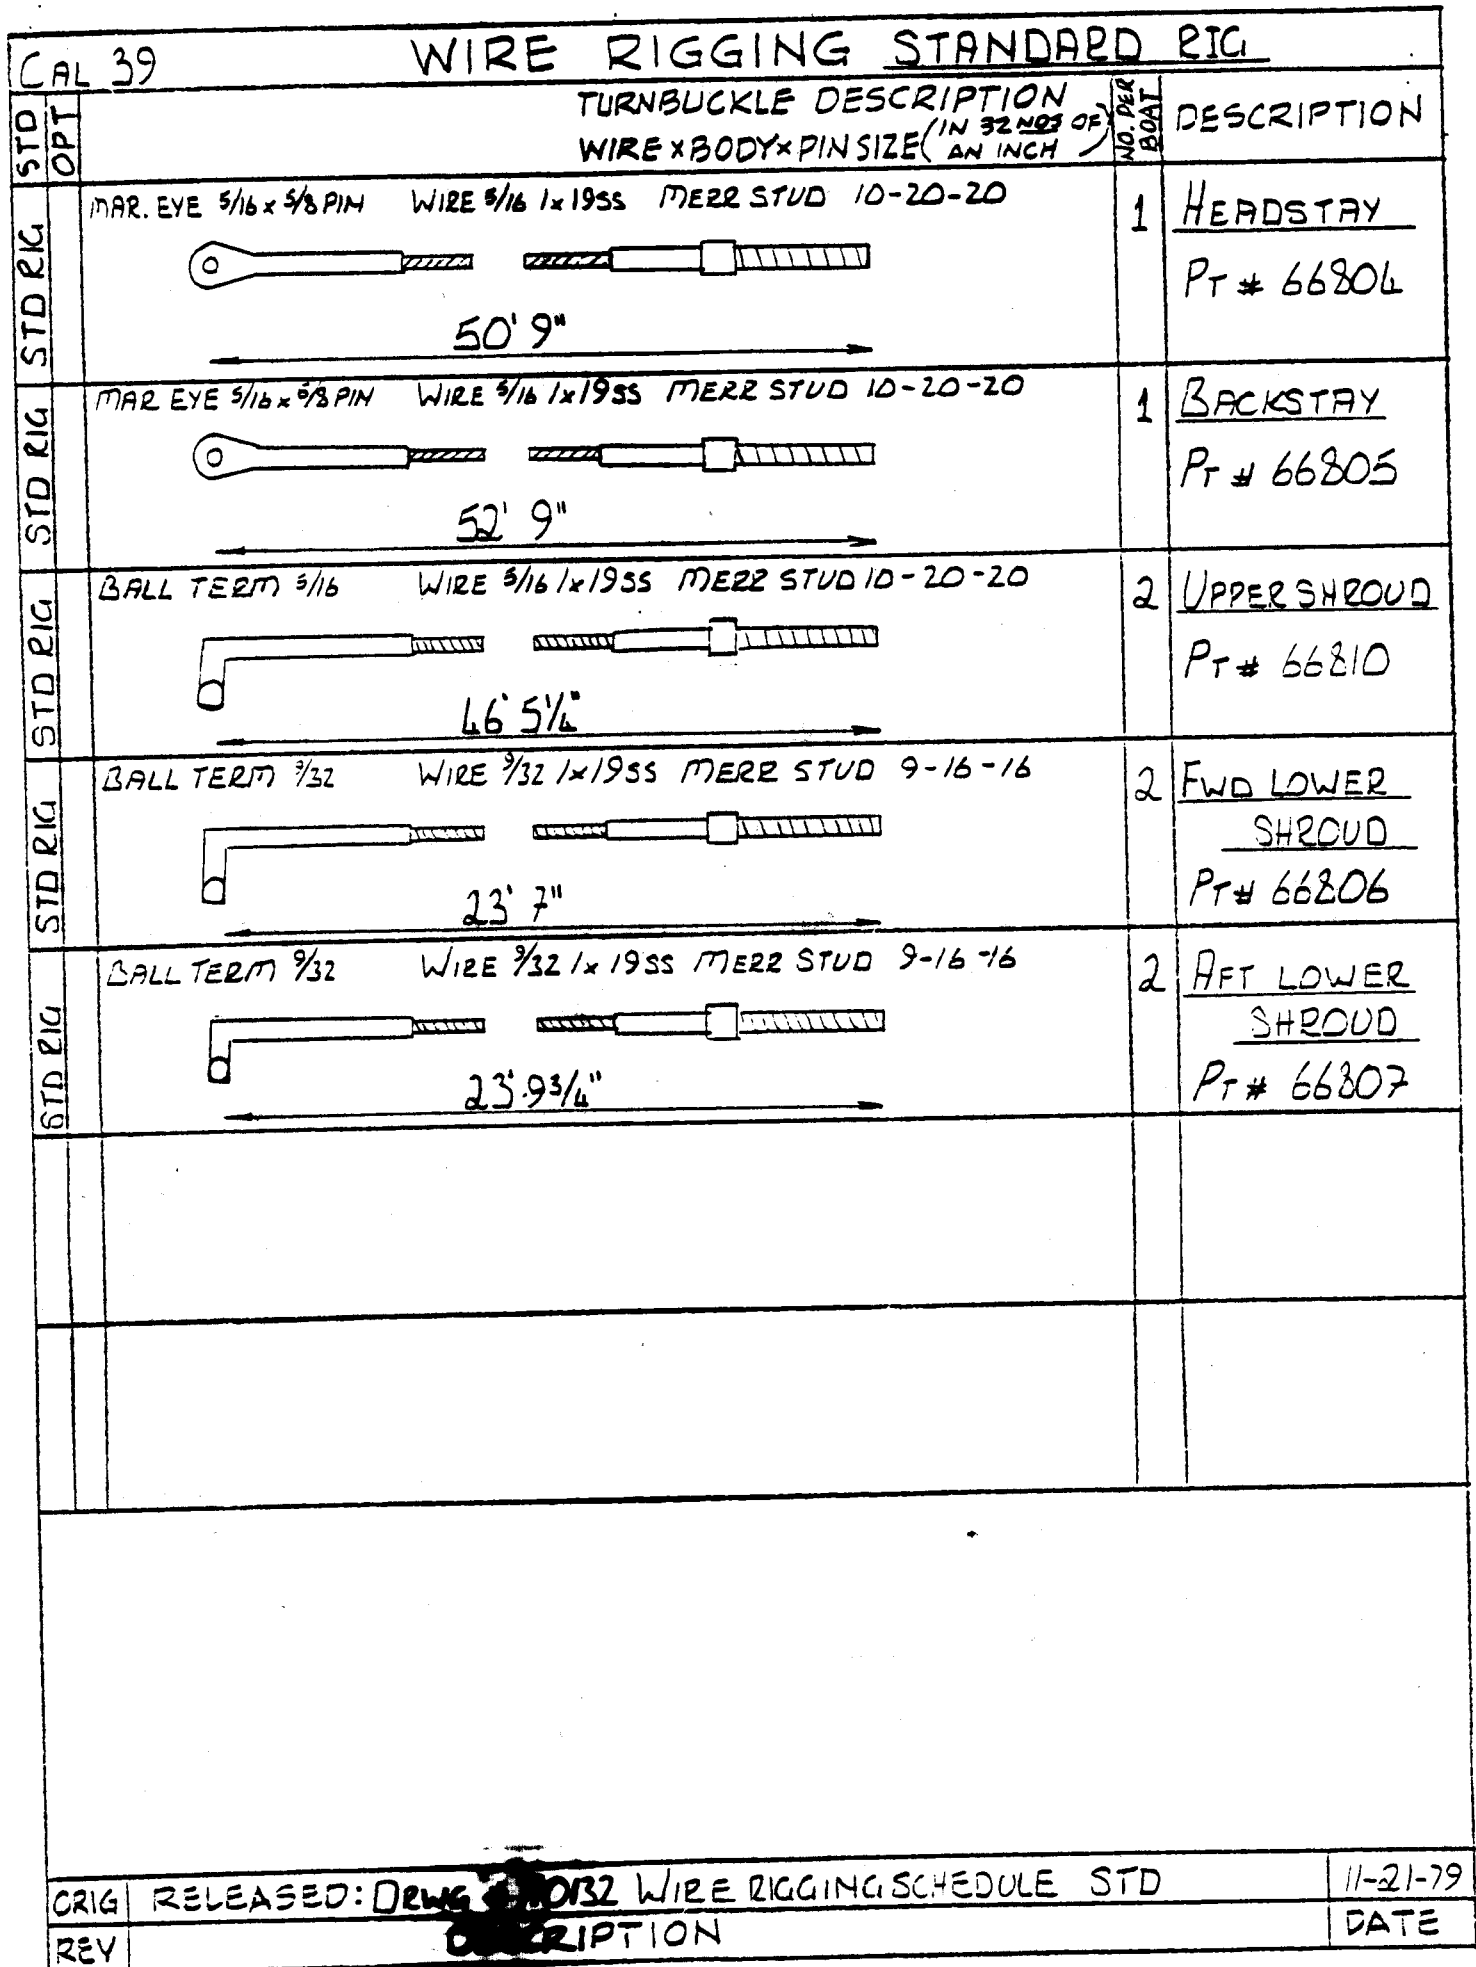 CAL 39
WIRE RIGGING STANDARD RIG
STD
OPT
TURNBUCKLE DESCRIPTION
WIRE x BODY x PIN SIZE (IN 32NDS OF AN INCH)
NO. PER BOAT
DESCRIPTION
STD RIG
MAR. EYE 5/16 x 5/8 PIN WIRE 5/16 1x19SS MERR STUD 10-20-20
50' 9"
1
HEADSTAY
PT # 66804
STD RIG
MAR EYE 5/16 x 5/8 PIN WIRE 5/16 1x19SS MERR STUD 10-20-20
52' 9"
1
BACKSTAY
PT # 66805
STD RIG
BALL TERM 5/16 WIRE 5/16 1x19SS MERR STUD 10-20-20
46' 5 1/4"
2
UPPER SHROUD
PT # 66810
STD RIG
BALL TERM 9/32 WIRE 9/32 1x19SS MERR STUD 9-16-16
23' 7"
2
FWD LOWER
SHROUD
PT # 66806
STD RIG
BALL TERM 9/32 WIRE 9/32 1x19SS MERR STUD 9-16-16
23' 9 3/4"
2
AFT LOWER
SHROUD
PT # 66807
ORIG RELEASED: DRWG 0132 WIRE RIGGING SCHEDULE STD 11-21-79
REV DESCRIPTION DATE